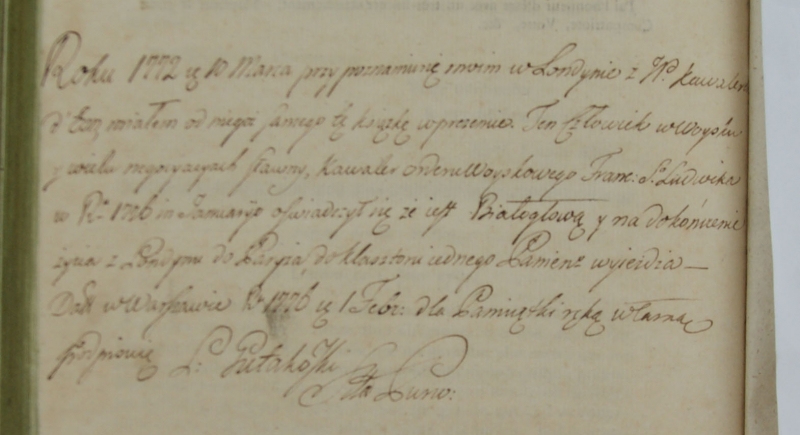 Roku 1772 ię 10 Marca przy poznaniu się moim w Londynie z W. Kawaler
d'Eon miałem od niego samego tę książkę w prezenie. Ten Człowiek w Woysku
y wielu negocyacyach sławny, Kawaler orderu Woyskowego Franc: S. Ludwika
w R. 1776 in Januario oświadczył się że iest Białągłową y na dokończenie
życia z Londynu do Paryża, do klasztoru iednego Panienz wyieżdża —
Dałł w Warszawie R. 1776 ię 1 Febr: dla Pamiątki ręką własną
podpisuię L: